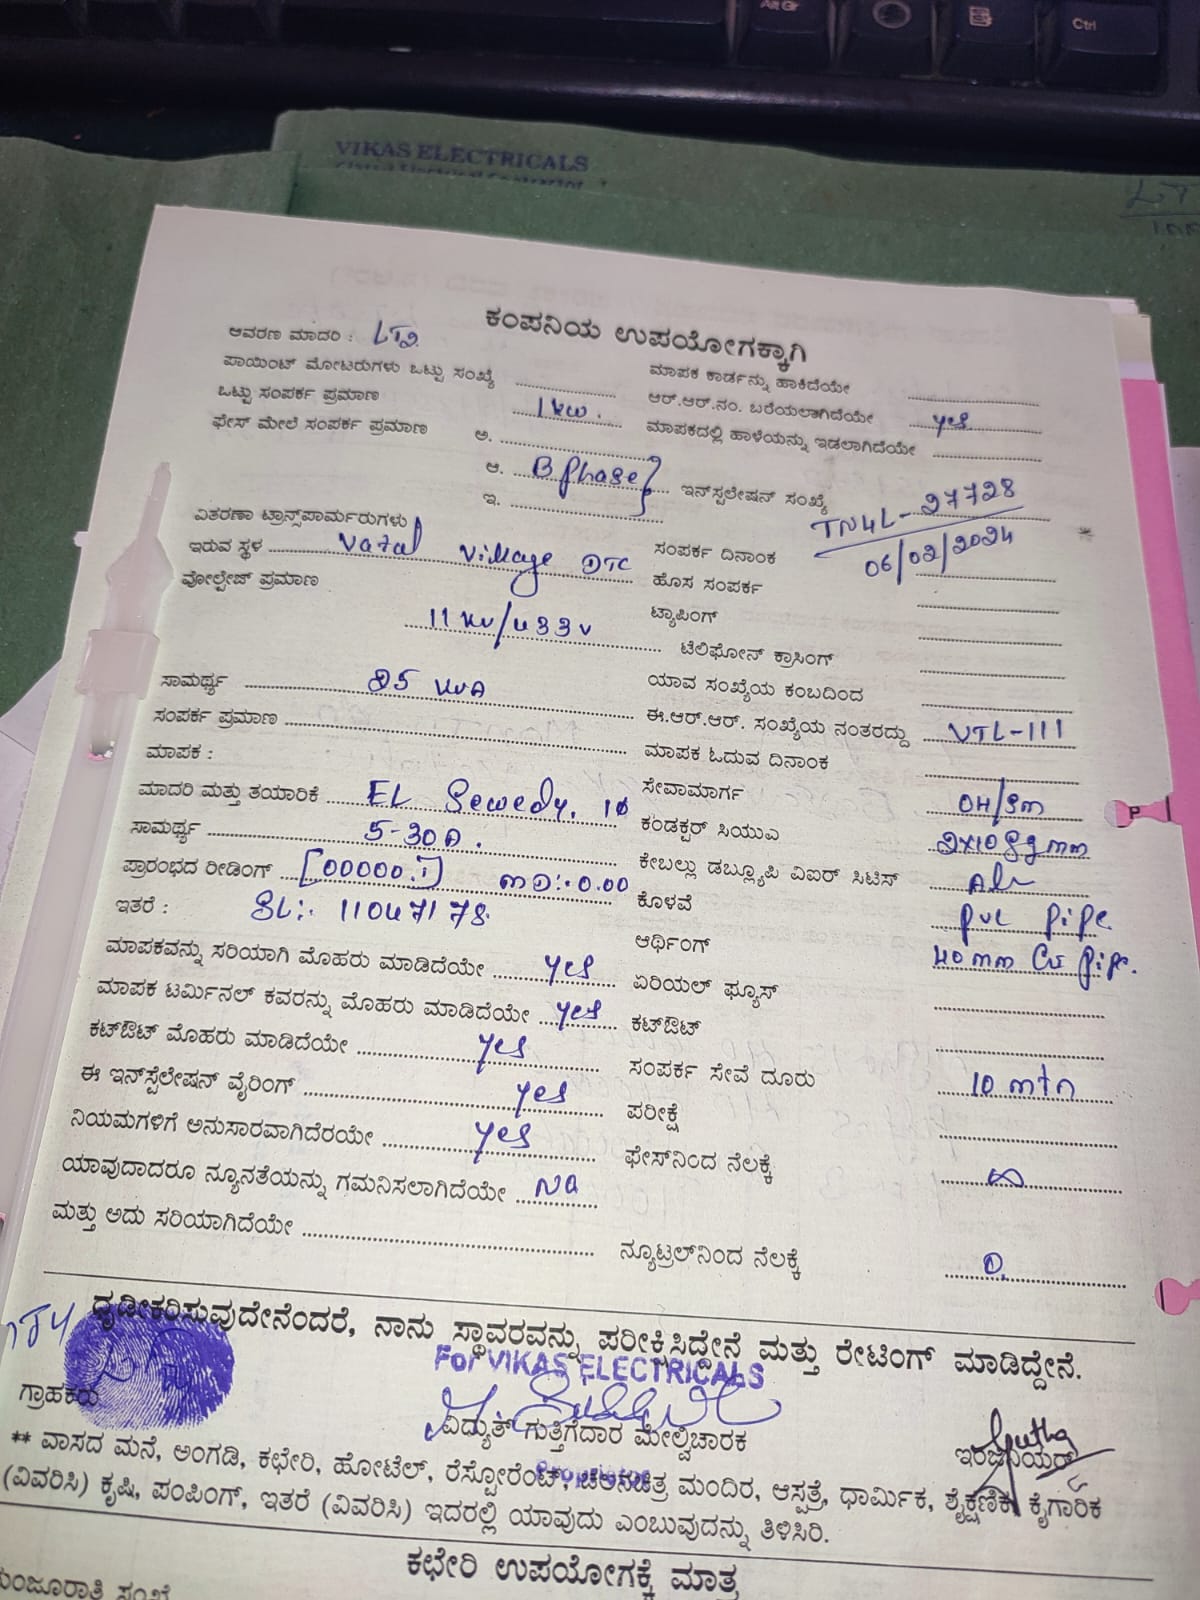 Alt Gr
Ctrl
VIKAS ELECTRICALS
ಕಂಪನಿಯ ಉಪಯೋಗಕ್ಕಾಗಿ
ಆವರಣ ಮಾದರಿ : LT2
ಪಾಯಿಂಟ್ ಮೋಟರುಗಳು ಒಟ್ಟು ಸಂಖ್ಯೆ
ಮಾಪಕ ಕಾರ್ಡನ್ನು ಹಾಕಿದೆಯೇ
ಒಟ್ಟು ಸಂಪರ್ಕ ಪ್ರಮಾಣ 1 kw.
ಆರ್.ಆರ್.ನಂ. ಬರೆಯಲಾಗಿದೆಯೇ yes
ಫೇಸ್ ಮೇಲೆ ಸಂಪರ್ಕ ಪ್ರಮಾಣ ಅ.
ಮಾಪಕದಲ್ಲಿ ಹಾಳೆಯನ್ನು ಇಡಲಾಗಿದೆಯೇ
ಆ. B phase
ಇನ್‌ಸ್ಪಲೇಷನ್ ಸಂಖ್ಯೆ TN4L-27728
ಇ.
ವಿತರಣಾ ಟ್ರಾನ್ಸ್‌ಪಾರ್ಮರುಗಳು
ಇರುವ ಸ್ಥಳ Vatal Village DTC
ಸಂಪರ್ಕ ದಿನಾಂಕ 06/02/2024
ವೋಲ್ಟೇಜ್ ಪ್ರಮಾಣ
ಹೊಸ ಸಂಪರ್ಕ
11 kv/433v
ಟ್ಯಾಪಿಂಗ್
ಟೆಲಿಫೋನ್ ಕ್ರಾಸಿಂಗ್
ಸಾಮರ್ಥ್ಯ 25 KVA
ಯಾವ ಸಂಖ್ಯೆಯ ಕಂಬದಿಂದ
ಸಂಪರ್ಕ ಪ್ರಮಾಣ
ಈ.ಆರ್.ಆರ್. ಸಂಖ್ಯೆಯ ನಂತರದ್ದು VTL-111
ಮಾಪಕ :
ಮಾಪಕ ಓದುವ ದಿನಾಂಕ
ಮಾದರಿ ಮತ್ತು ತಯಾರಿಕೆ EL Sewedy. 1ɸ
ಸೇವಾಮಾರ್ಗ OH/Sm
ಸಾಮರ್ಥ್ಯ 5-30A.
ಕಂಡಕ್ಟರ್ ಸಿಯುಎ 2x10 sqmm
ಪ್ರಾರಂಭದ ರೀಡಿಂಗ್ [00000.1] MD:- 0.00
ಕೇಬಲ್ಲು ಡಬ್ಲ್ಯೂಪಿ ವಿಐರ್ ಸಿಟಿಸ್
ಇತರೆ : SL:- 11047178.
ಕೊಳವೆ pvc pipe
ಮಾಪಕವನ್ನು ಸರಿಯಾಗಿ ಮೊಹರು ಮಾಡಿದೆಯೇ yes
ಆರ್ಥಿಂಗ್ 40mm GI pipe.
ಮಾಪಕ ಟರ್ಮಿನಲ್ ಕವರನ್ನು ಮೊಹರು ಮಾಡಿದೆಯೇ yes
ಏರಿಯಲ್ ಫ್ಯೂಸ್
ಕಟ್‌ಔಟ್ ಮೊಹರು ಮಾಡಿದೆಯೇ yes
ಕಟ್‌ಔಟ್
ಈ ಇನ್‌ಸ್ಪೆಲೇಷನ್ ವೈರಿಂಗ್ yes
ಸಂಪರ್ಕ ಸೇವೆ ದೂರು 10 mtr
ನಿಯಮಗಳಿಗೆ ಅನುಸಾರವಾಗಿದೆರಯೇ yes
ಪರೀಕ್ಷೆ
ಯಾವುದಾದರೂ ನ್ಯೂನತೆಯನ್ನು ಗಮನಿಸಲಾಗಿದೆಯೇ NO
ಫೇಸ್‌ನಿಂದ ನೆಲಕ್ಕೆ ∞
ಮತ್ತು ಅದು ಸರಿಯಾಗಿದೆಯೇ
ನ್ಯೂಟ್ರಲ್‌ನಿಂದ ನೆಲಕ್ಕೆ 0.
ಧೃಡೀಕರಿಸುವುದೇನೆಂದರೆ, ನಾನು ಸ್ಥಾವರವನ್ನು ಪರೀಕ್ಷಿಸಿದ್ದೇನೆ ಮತ್ತು ರೇಟಿಂಗ್ ಮಾಡಿದ್ದೇನೆ.
For VIKAS ELECTRICALS
ಗ್ರಾಹಕರು
ವಿಧ್ಯುತ್ ಗುತ್ತಿಗೆದಾರ ಮೇಲ್ವಿಚಾರಕ
ಇಂಜಿನಿಯರ್
** ವಾಸದ ಮನೆ, ಅಂಗಡಿ, ಕಛೇರಿ, ಹೋಟೆಲ್, ರೆಸ್ಟೋರೆಂಟ್, ಚಲನಚಿತ್ರ ಮಂದಿರ, ಆಸ್ಪತ್ರೆ, ಧಾರ್ಮಿಕ, ಶೈಕ್ಷಣಿಕ, ಕೈಗಾರಿಕ
(ವಿವರಿಸಿ) ಕೃಷಿ, ಪಂಪಿಂಗ್, ಇತರೆ (ವಿವರಿಸಿ) ಇದರಲ್ಲಿ ಯಾವುದು ಎಂಬುವುದನ್ನು ತಿಳಿಸಿರಿ.
ಕಛೇರಿ ಉಪಯೋಗಕ್ಕೆ ಮಾತ್ರ